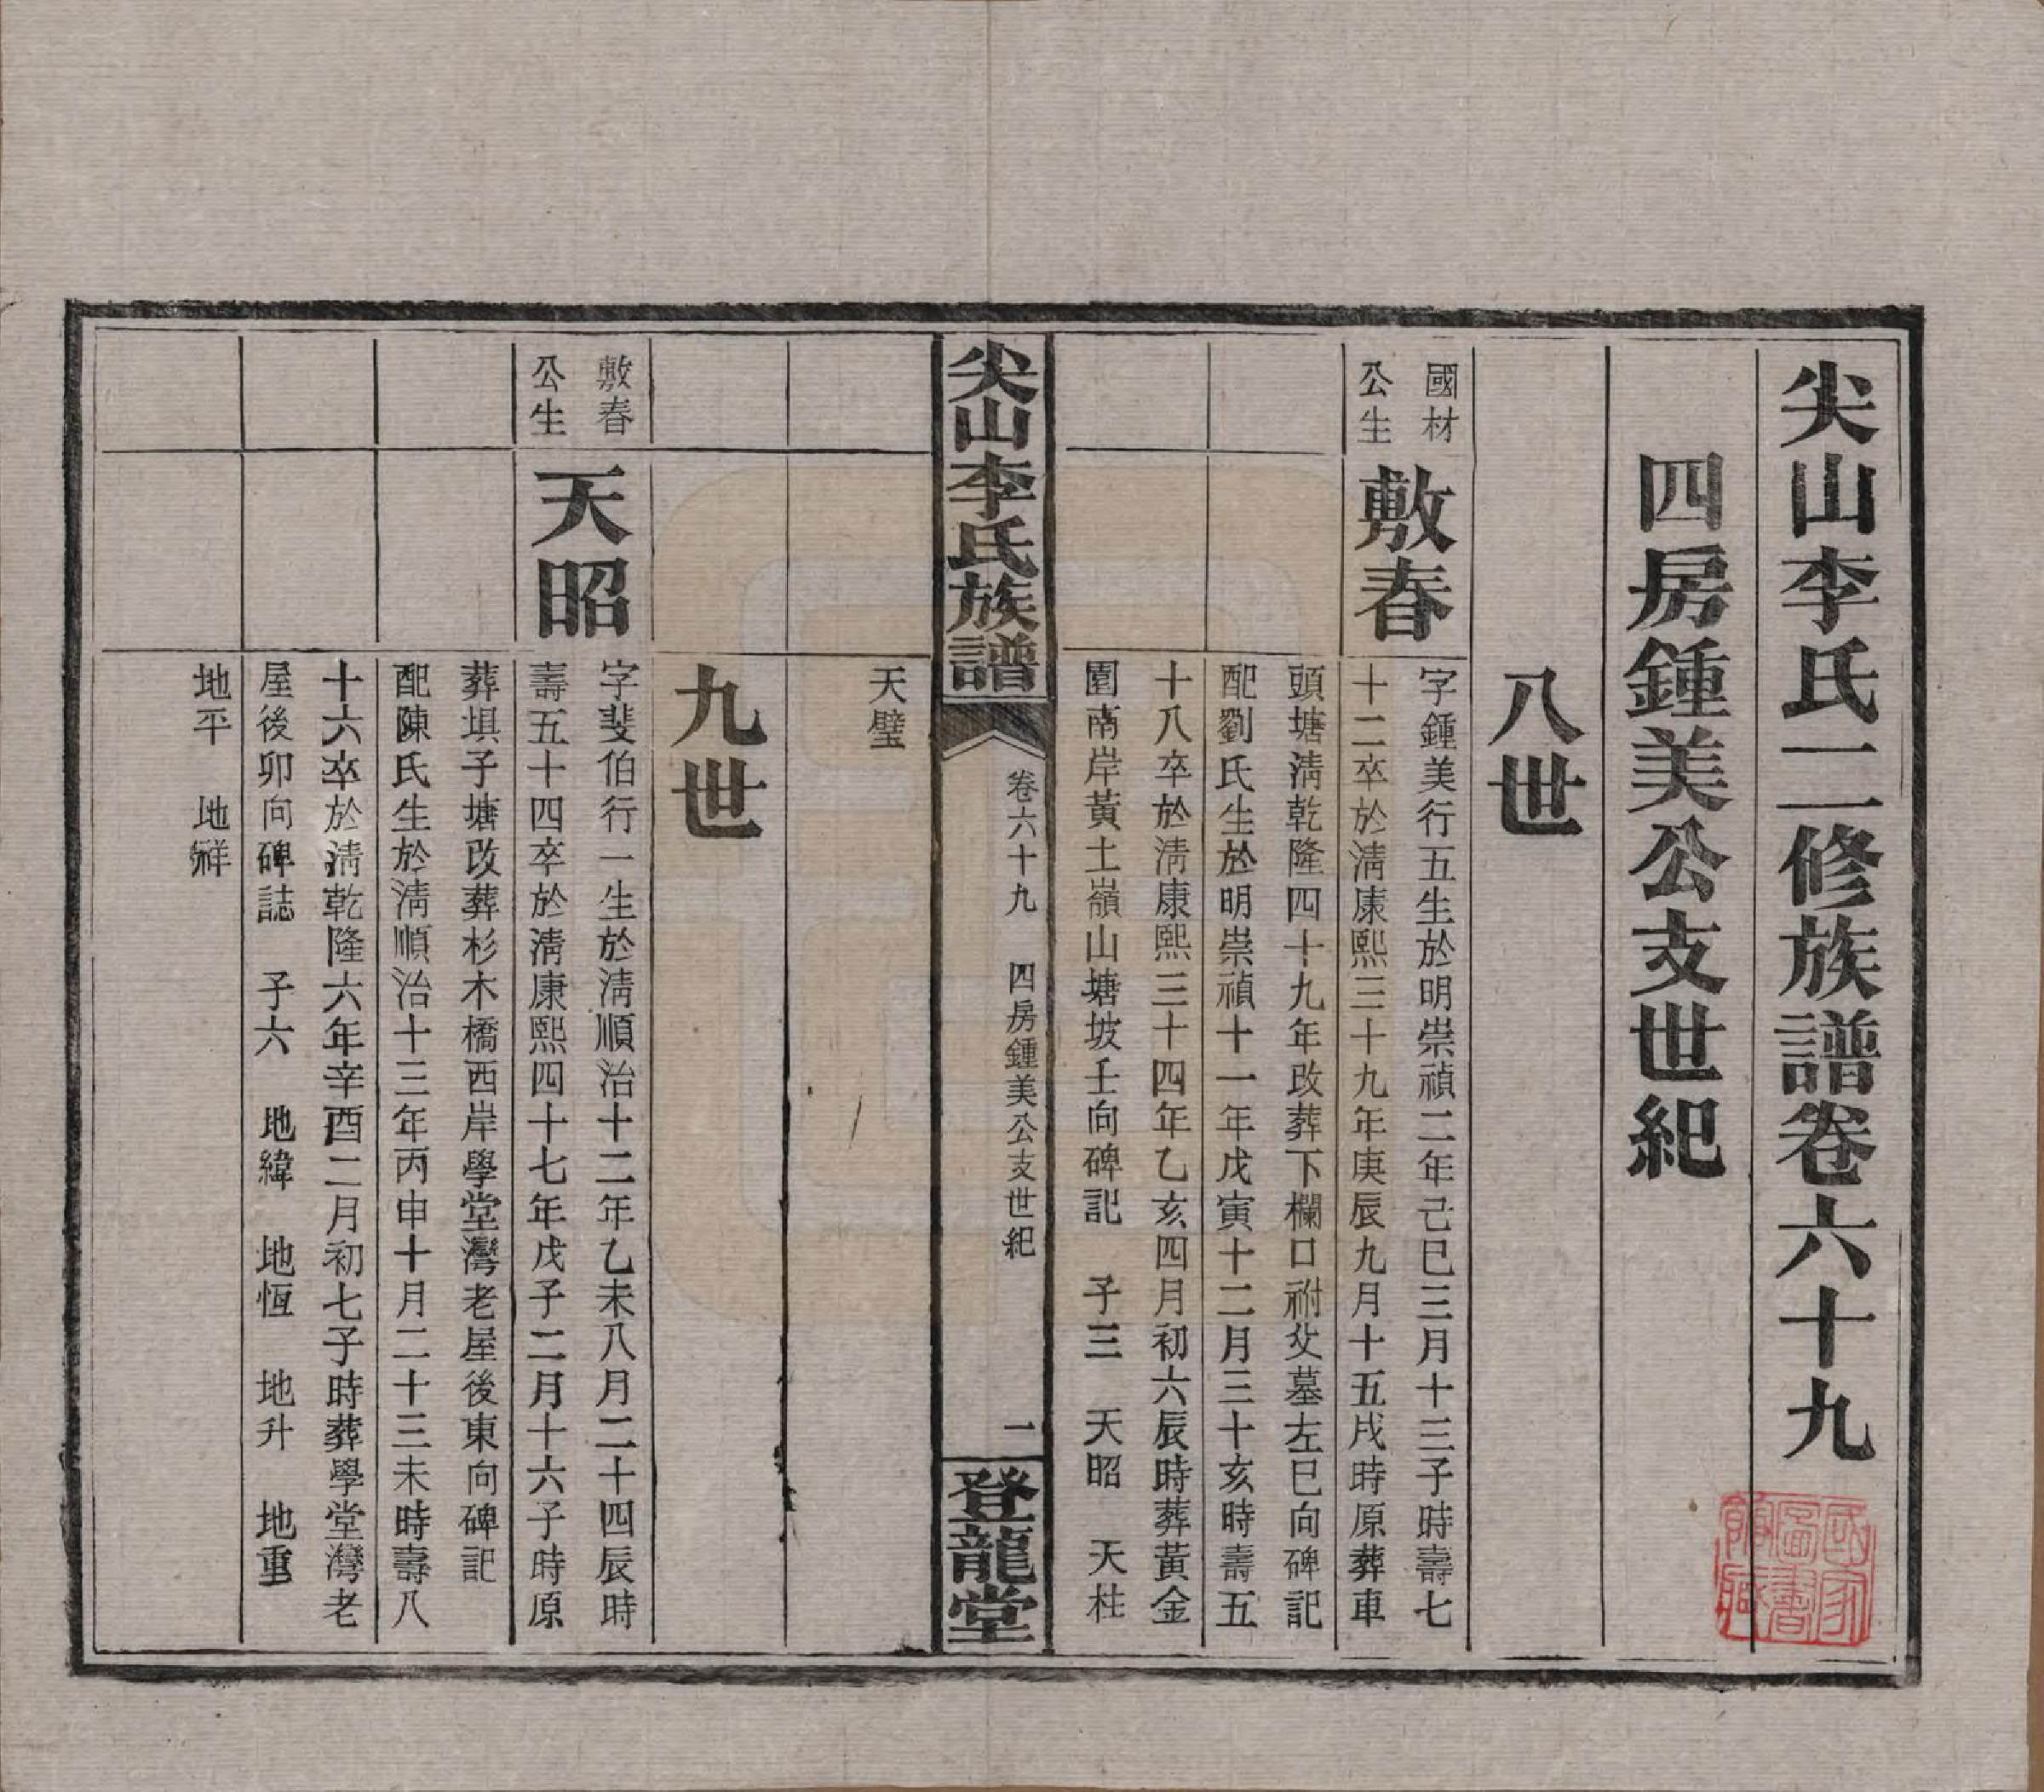 尖山李氏二修族譜卷六十九
四房鍾美公支世紀
八世
國材
公生
敷春
字鍾美行五生於明崇禎二年己巳三月十三子時壽七
十二卒於淸康熙三十九年庚辰九月十五戌時原葬車
頭塘淸乾隆四十九年改葬下欄口祔父墓左巳向碑記
配劉氏生於明崇禎十一年戊寅十二月三十亥時壽五
十八卒於淸康熙三十四年乙亥四月初六辰時葬黃金
園南岸黃土嶺山塘坡壬向碑記 子三 天昭 天柱
尖山李氏族譜
卷六十九 四房鍾美公支世紀
一
登龍堂
天璧
九世
敷春
公生
天昭
字斐伯行一生於淸順治十二年乙未八月二十四辰時
壽五十四卒於淸康熙四十七年戊子二月十六子時原
葬埧子塘改葬杉木橋西岸學堂灣老屋後東向碑記
配陳氏生於淸順治十三年丙申十月二十三未時壽八
十六卒於淸乾隆六年辛酉二月初七子時葬學堂灣老
屋後卯向碑誌 子六 地緯 地恆 地升 地重
地平 地祥
國家
圖書
館藏